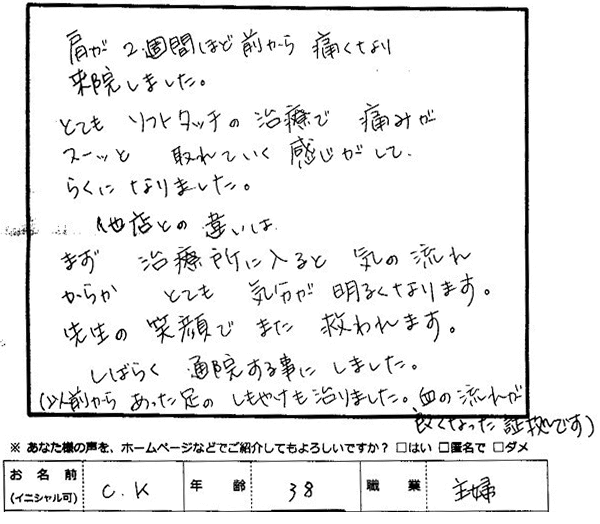 肩が 2週間ほど前から 痛くなり
来院しました。
とても ソフトタッチの 治療で 痛みが
スーッと 取れていく 感じがして、
らくに なりました。
他店との 違いは
まず 治療所に入ると 気の流れ
からか とても 気分が 明るくなります。
先生の 笑顔で また 救われます。
しばらく 通院する事に しました。
(以前から あった足の しもやけも治りました。血の流れが
良くなった 証拠です)
※ あなた様の声を、ホームページなどでご紹介してもよろしいですか？ □はい □匿名で □ダメ
お名前 (イニシャル可) C.K 年齢 38 職業 主婦